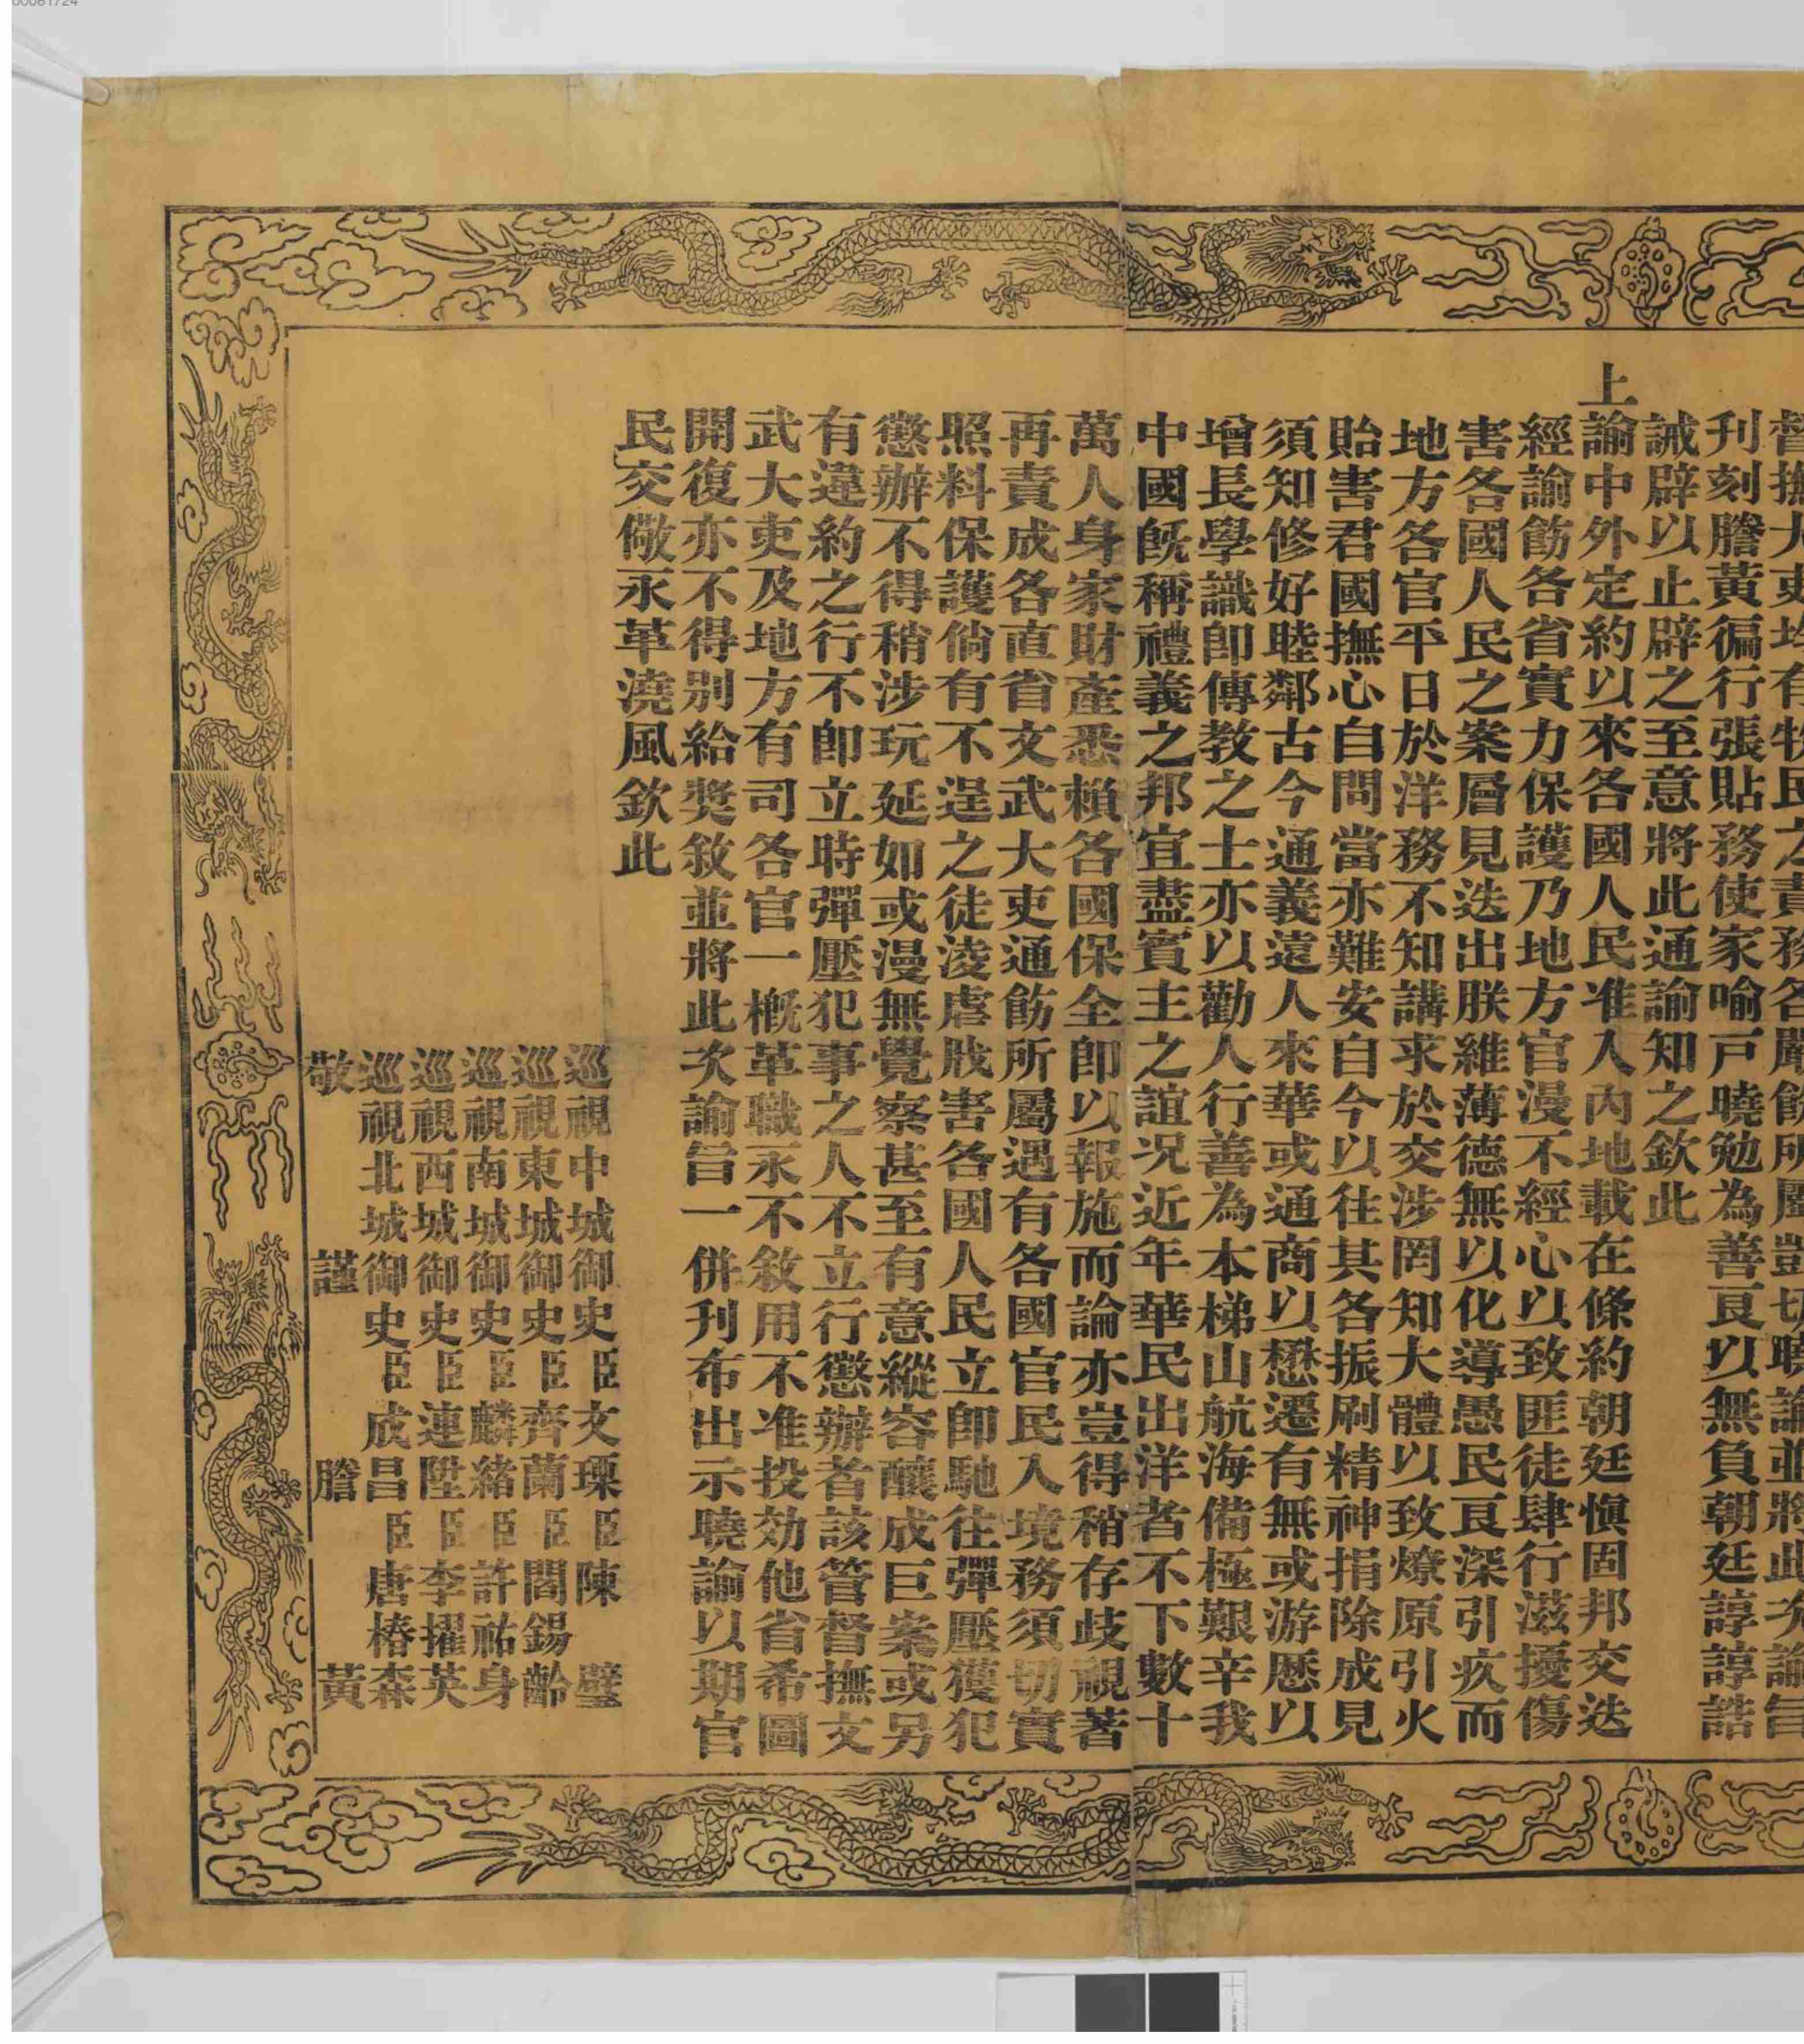 督撫大吏均有牧民之責務各嚴飭所屬剴切曉諭並將此次諭旨
刊刻謄黃徧行張貼務使家喻戸曉勉為善良以無負朝廷諄諄誥
誡辟以止辟之至意將此通諭知之欽此
上諭中外定約以來各國人民准入內地載在條約朝廷愼固邦交迭
經諭飭各省實力保護乃地方官漫不經心以致匪徒肆行滋擾傷
害各國人民之案層見迭出朕維薄德無以化導愚民良深引疚而
地方各官平日於洋務不知講求於交涉罔知大體以致燎原引火
貽害君國撫心自問當亦難安自今以往其各振刷精神捐除成見
須知修好睦鄰古今通義遠人來華或通商以懋遷有無或游歷以
增長學識卽傳教之士亦以勸人行善為本梯山航海備極艱辛我
中國旣稱禮義之邦宜盡賓主之誼況近年華民出洋者不下數十
萬人身家財產悉賴各國保全卽以報施而論亦豈得稍存歧視著
再責成各直省文武大吏通飭所屬遇有各國官民入境務須切實
照料保護倘有不逞之徒淩虐戕害各國人民立卽馳往彈壓獲犯
懲辦不得稍涉玩延如或漫無覺察甚至有意縱容釀成巨案或另
有違約之行不卽立時彈壓犯事之人不立行懲辦者該管督撫文
武大吏及地方有司各官一槪革職永不敘用不准投効他省希圖
開復亦不得別給獎敘並將此次諭旨一併刊布出示曉諭以期官
民交儆永革澆風欽此
巡視中城御史臣文瑮臣陳璧
巡視東城御史臣齊蘭臣閻錫齡
巡視南城御史臣麟緒臣許祐身
巡視西城御史臣連陞臣李擢英
巡視北城御史臣成昌臣唐椿森
敬謹謄黃